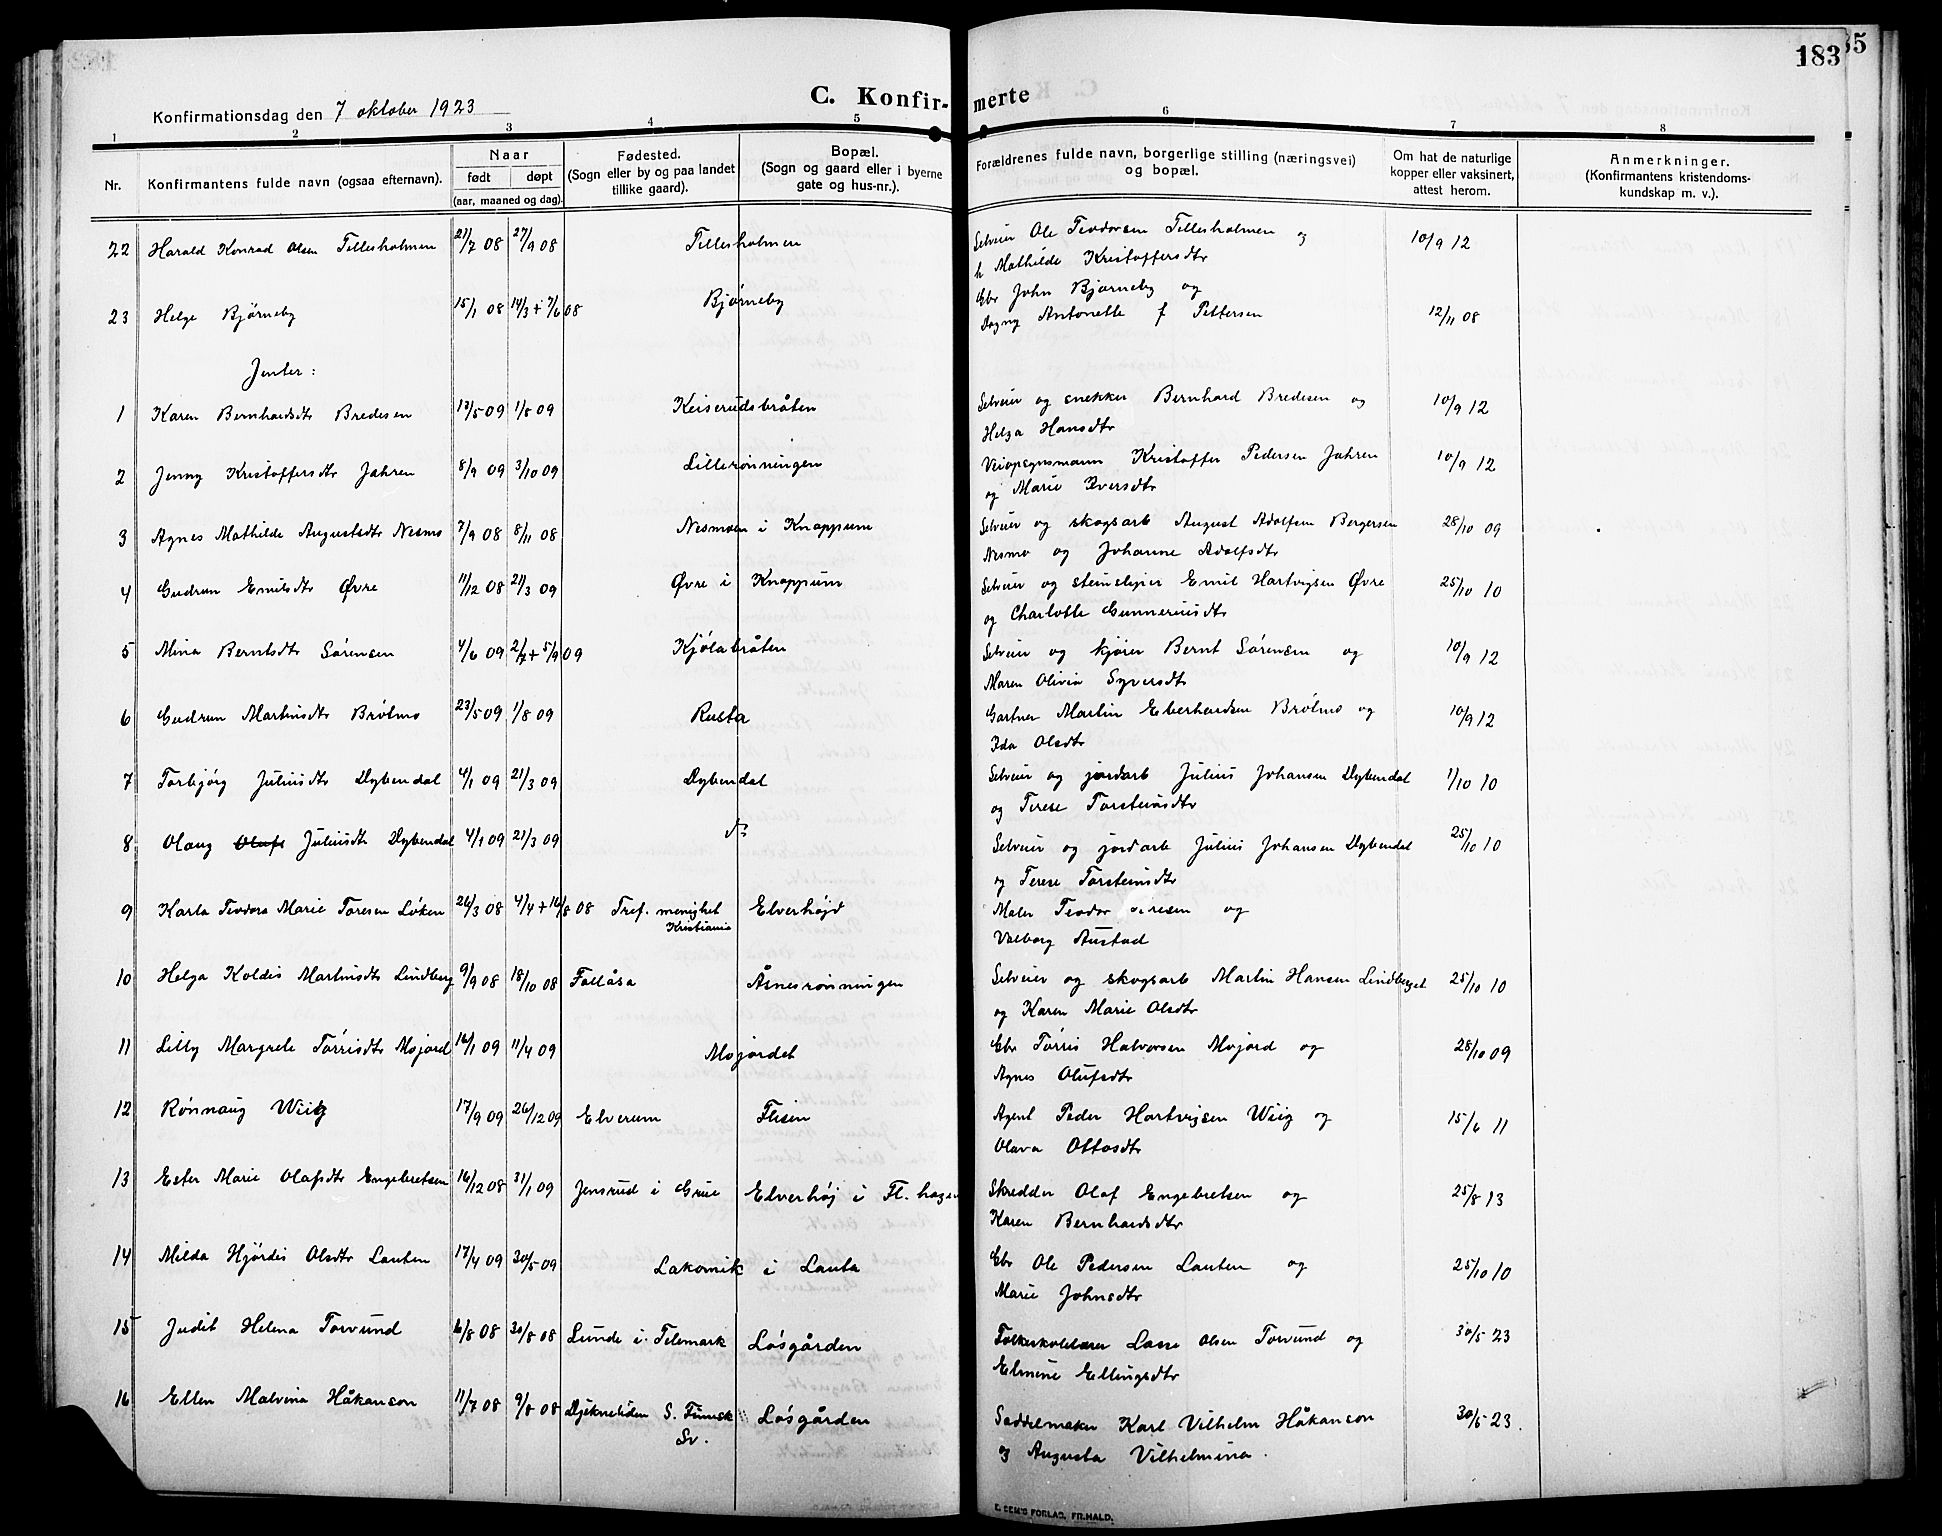 183
C. Konfirmerte
Konfirmationsdag den 7 oktober 1923
1 2 3 4 5 6 7 8
Nr.
Konfirmantens fulde navn (ogsaa efternavn).
Naar
født døpt
(aar, maaned og dag).
Fødested.
(Sogn eller by og paa landet
tillike gaard).
Bopæl.
(Sogn og gaard eller i byerne
gate og hus-nr.).
Forældrenes fulde navn, borgerlige stilling (næringsvei)
og bopæl.
Om hat de naturlige
kopper eller vaksinert,
attest herom.
Anmerkninger.
(Konfirmantens kristendoms-
kundskap m. v.).
22 Harald Konrad Olsen Tillesholmen 21/7 08 27/9 08 Tillesholmen Selveier Ole Teodorsen Tillesholmen og 10/9 12
h Mathilde Kristoffersdtr
23 Helge Bjørneby 15/1 08 14/3 + 7/6 08 Bjørneby Gbr John Bjørneby og
Dagny Antonette f Pettersen 12/11 08
Jenter:
1 Karen Bernhardsdtr Bredesen 13/5 09 1/8 09 Keiserudsbråten Selveier og snekker Bernhard Bredesen og 10/9 12
Helga Hansdtr
2 Jenny Kristoffersdtr Jahren 8/9 09 3/10 09 Lillerønningen Veiopsynsmann Kristoffer Pedersen Jahren 10/9 12
og Marie Iversdtr
3 Agnes Mathilde Augustsdtr Nesmo 7/9 08 8/11 08 Nesmoen i Knappum Selveier og skogsarb August Adolfsen Bergersen 28/10 09
Nesmo og Johanne Adolfsdtr
4 Gudrun Emilsdtr Øvre 11/12 08 21/3 09 Øvre i Knappum Selveier og Emil Hartvigsen Øvre 25/10 10
og Charlotte Gunneriusdtr
5 Mina Berntsdtr Sørensen 4/6 09 2/7 + 5/9 09 Kjølabråten Selveier og kjører Bernt Sørensen og 10/9 12
Maren Olivia Syversdtr
6 Gudrun Martinsdtr Brølmo 23/5 09 1/8 09 Rusta Gartner Martin Eberhardsen Brølmo og 10/9 12
Ida Olsdtr
7 Torbjørg Juliusdtr Dybendal 4/1 09 21/3 09 Dybendal Selveier og jordarb Julius Johansen Dybendal 1/10 10
og Terese Torsteinsdtr
8 Olaug Olufs Juliusdtr Dybendal 4/1 09 21/3 09 ds Selveier og jordarb Julius Johansen Dybendal 25/10 10
og Terese Torsteinsdtr
9 Karla Teodora Marie Toresen Løken 26/3 08 4/4 + 16/8 08 Tref. menighet Elverhøjd Maler Teodor og
Kristiania
Valborg Austad
10 Helga Koldis Martinsdtr Lindberg 9/9 08 18/10 08 Fallåsa Åsnesrønningen Selveier og skogsarb Martin Hansen Lindberget 25/10 10
og Karen Marie Olsdtr
11 Lilly Margrete Tørrisdtr Mojord 16/1 09 11/4 09 Mojordet Gbr Tørris Halvorsen Mojord og 28/10 09
Agnes Olufsdtr
12 Rønnaug Wiig 17/9 09 26/12 09 Elverum Flisen Agent Peder Hartvigsen Wiig og 15/6 11
Olava Ottosdtr
13 Ester Marie Olafsdtr Engebretsen 16/12 08 31/1 09 Jensrud i Grue Elverhøj i Fl. hagen Skredder Olaf Engebretsen og 25/8 13
Karen Bernhardsdtr
14 Milda Hjørdis Olsdtr Lauten 17/4 09 30/5 09 Lakomik i Lauta Gbr Ole Pedersen Lauten og 25/10 10
Marie Johnsdtr
15 Judit Helena Torvund 6/8 08 30/8 08 Lunde i Telemark Løsgården Lasse Olsen Torvund og 30/5 23
Elmine Ellingsdtr
16 Ellen Malvina Håkanson 11/7 08 9/8 08 Djekneliden S. Finnsk Løsgården Saddelmaker Karl Vilhelm Håkanson 30/5 23.
Sv.
og Augusta Vilhelmina.
E. SEM'S FORLAG, FR.HALD.